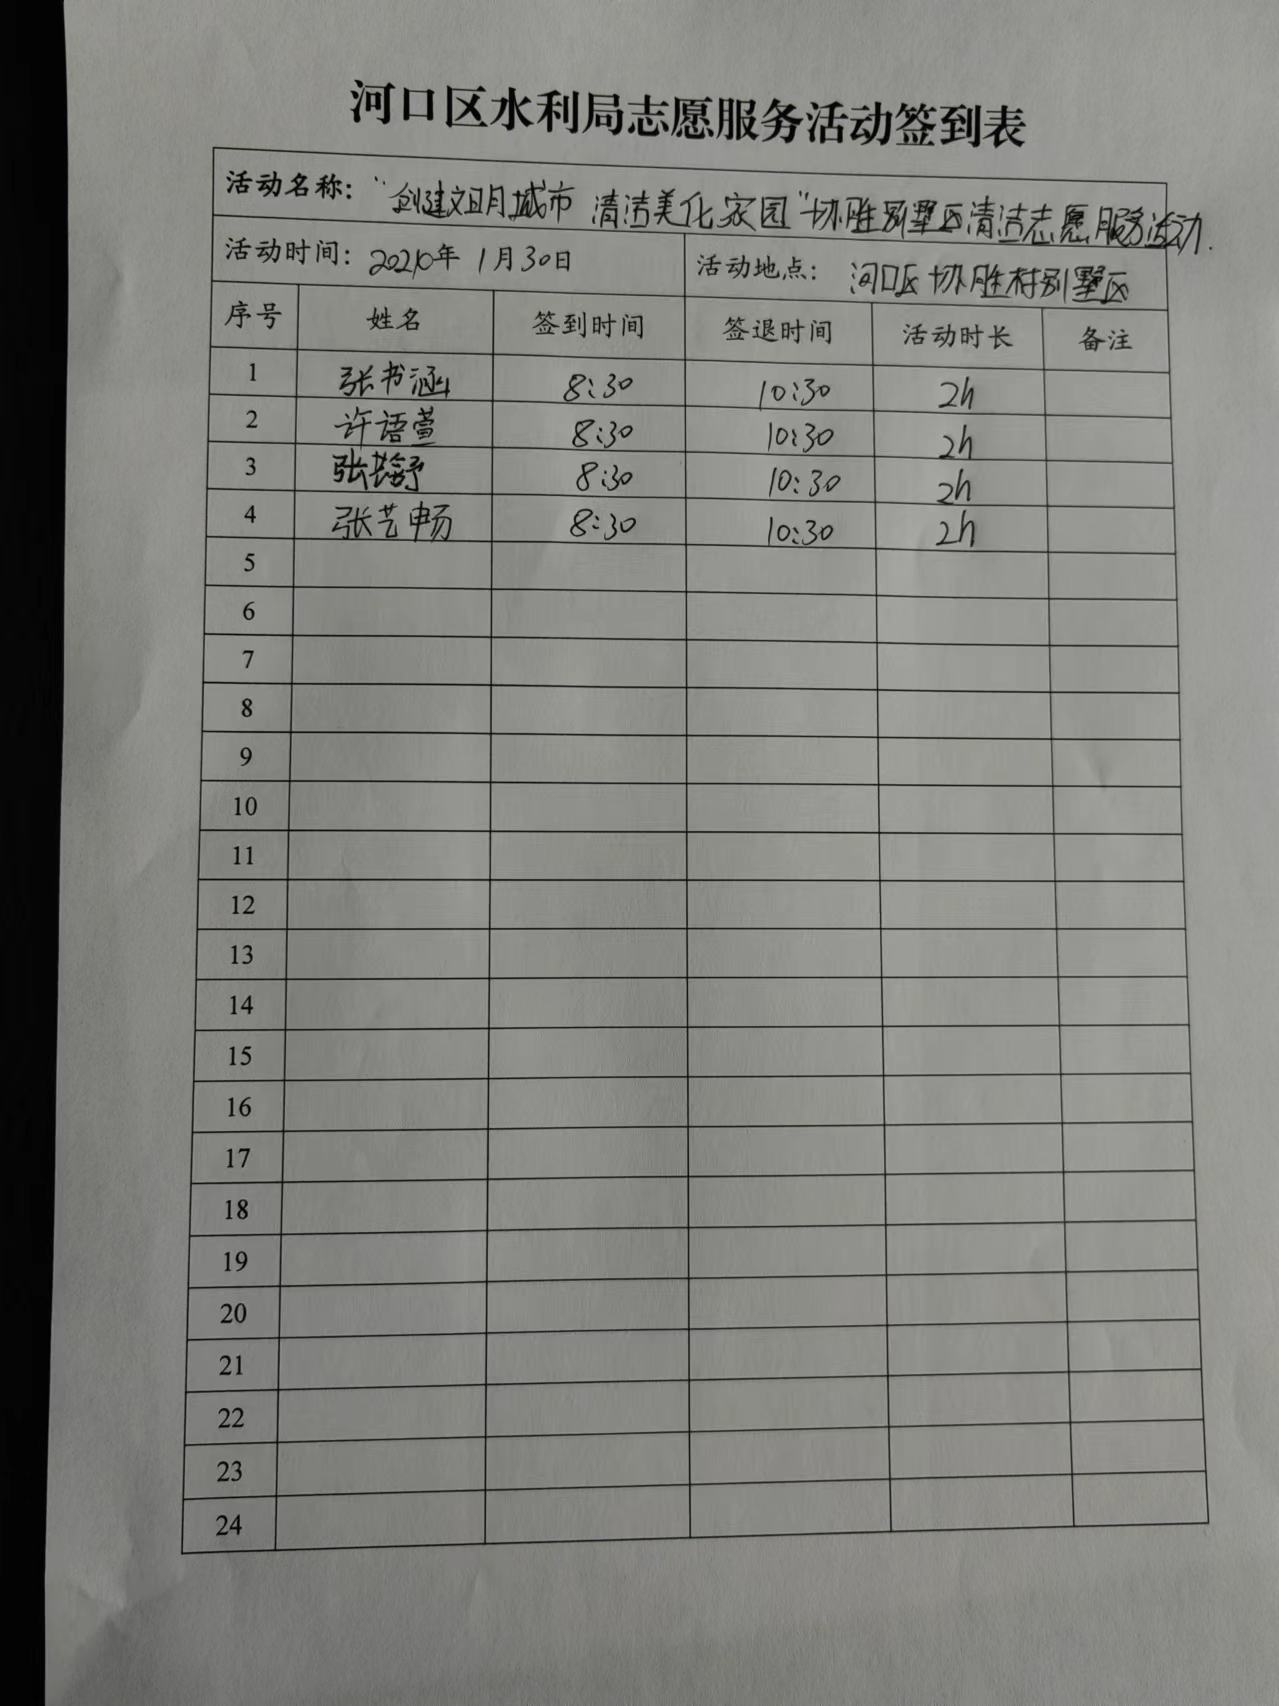 河口区水利局志愿服务活动签到表
活动名称：“创建文明城市 清洁美化家园”协胜别墅区清洁志愿服务活动.
活动时间： 年 1月30日 活动地点： 河口区协胜村别墅区
序号 姓名 签到时间 签退时间 活动时长 备注
1 张书涵 8:30 10:30 2h
2 许语萱 8:30 10:30 2h
3 8:30 10:30 2h
4 张艺畅 8:30 10:30 2h
5
6
7
8
9
10
11
12
13
14
15
16
17
18
19
20
21
22
23
24